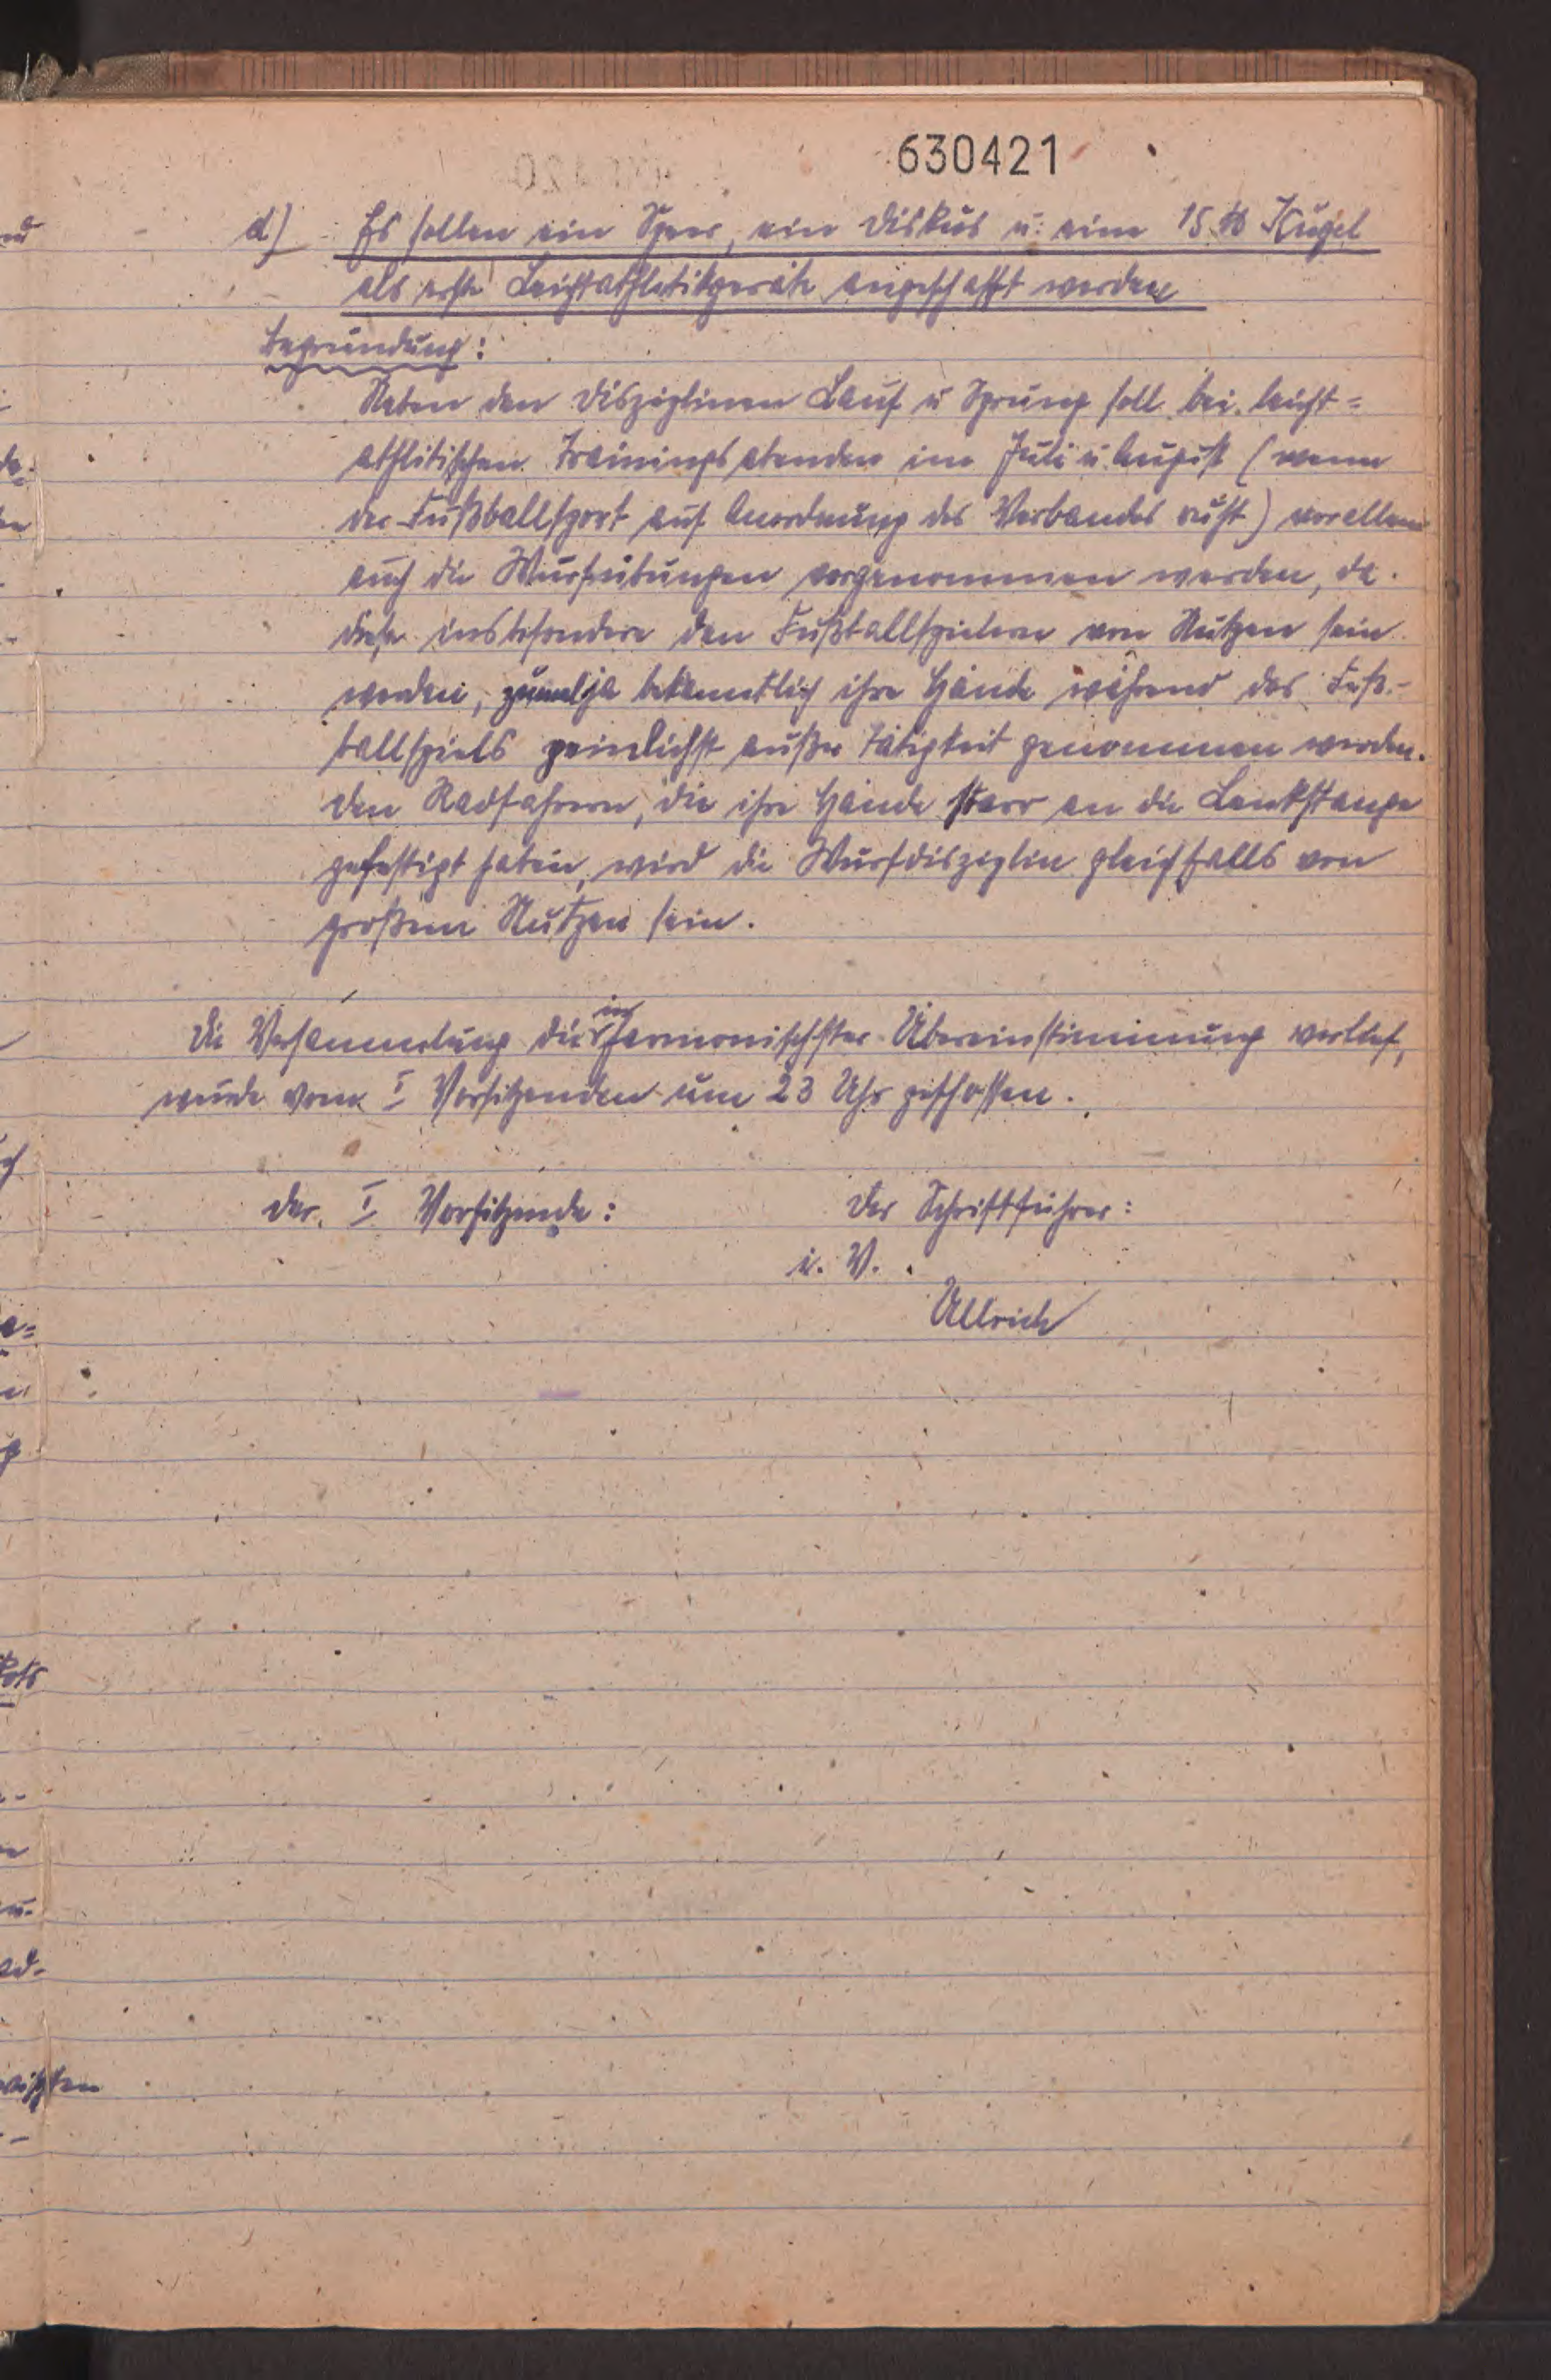 630421
d) Es sollen ein Speer, ein Diskus u. eine 15 ℔ Kugel
als erste Leichtathletikgeräte angeschafft werden
Begründung:
Neben den Disziplinen Lauf u Sprung soll bei leicht=
athletischen Trainingsabenden im Juli u. August (wenn
der Fußballsport auf Anordnung des Verbandes ruht) vorallem
auch die Wurfübungen vorgenommen werden, da
diese insbesondere den Fußballspielern von Nutzen sein
werden, zumal ja bekanntlich ihre Hände während des Fuß-
ballspiels peinlichst außer Tätigkeit genommen werden.
Den Radfahrern, die ihre Hände starr an die Lenkstange
gefestigt haben, wird die Wurfdisziplin gleichfalls von
großem Nutzen sein.
Die Versammlung die in harmonischster Übereinstimmung verlief,
wurde vom I Vorsitzenden um 23 Uhr geschlossen.
Der I Vorsitzende: Der Schriftführer:
i. V.
Ullrich